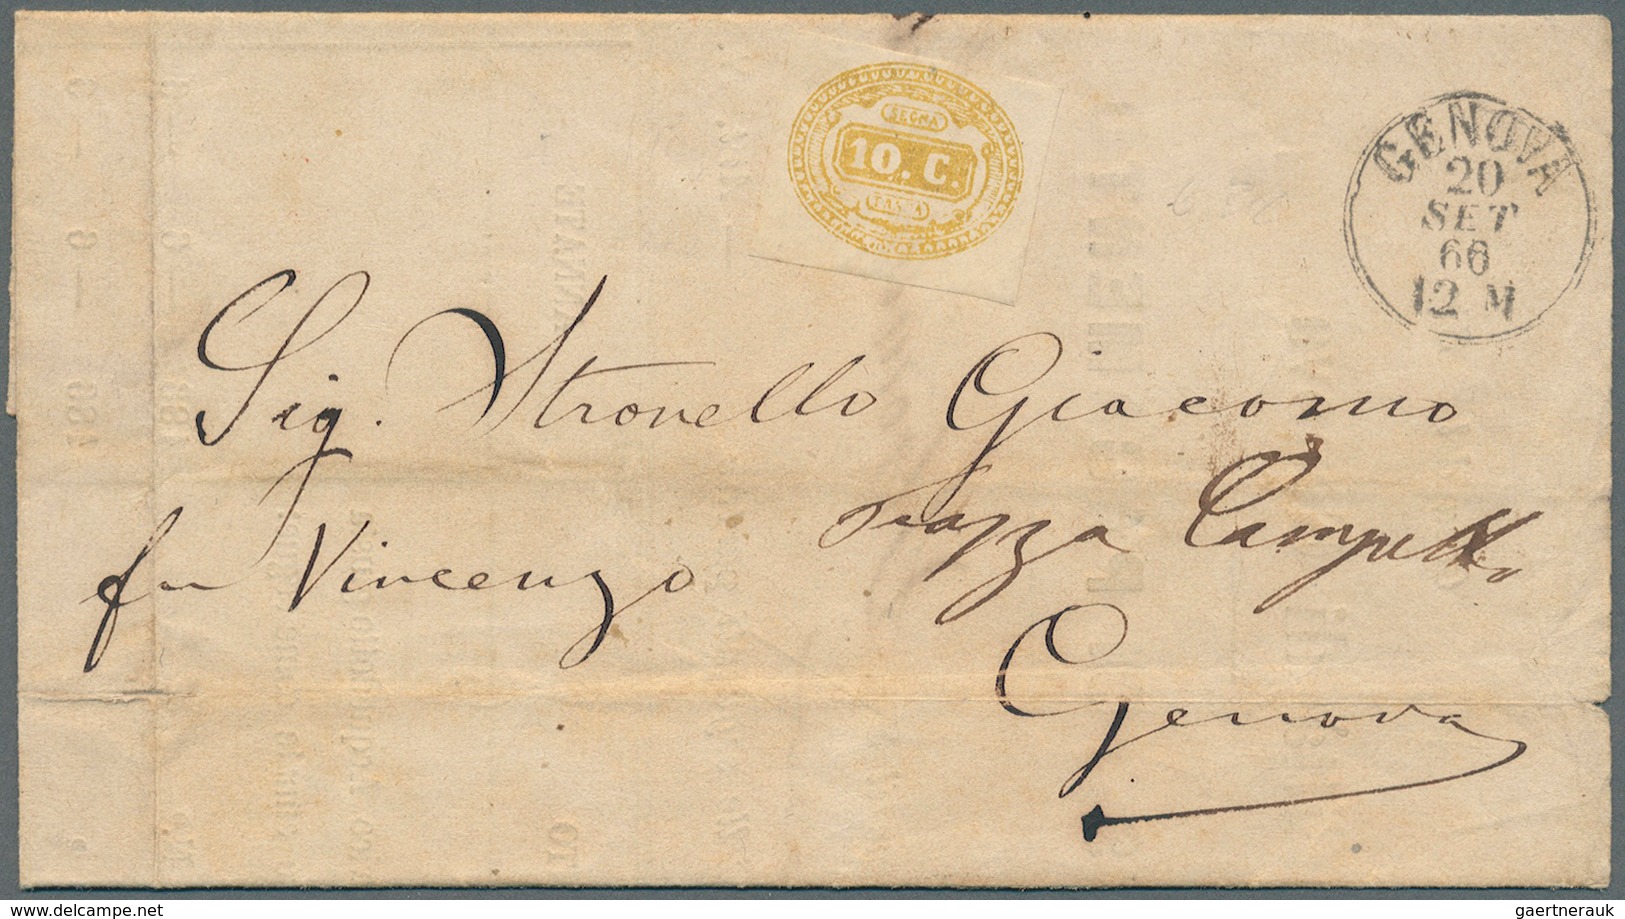 SEGNA
10. C.
TASSA
GENOVA
20
SET
66
12 M
Sig. Stronello Giacomo
fu Vincenzo Piazza Campetto
Genova
www.delcampe.net
gaertnerauk